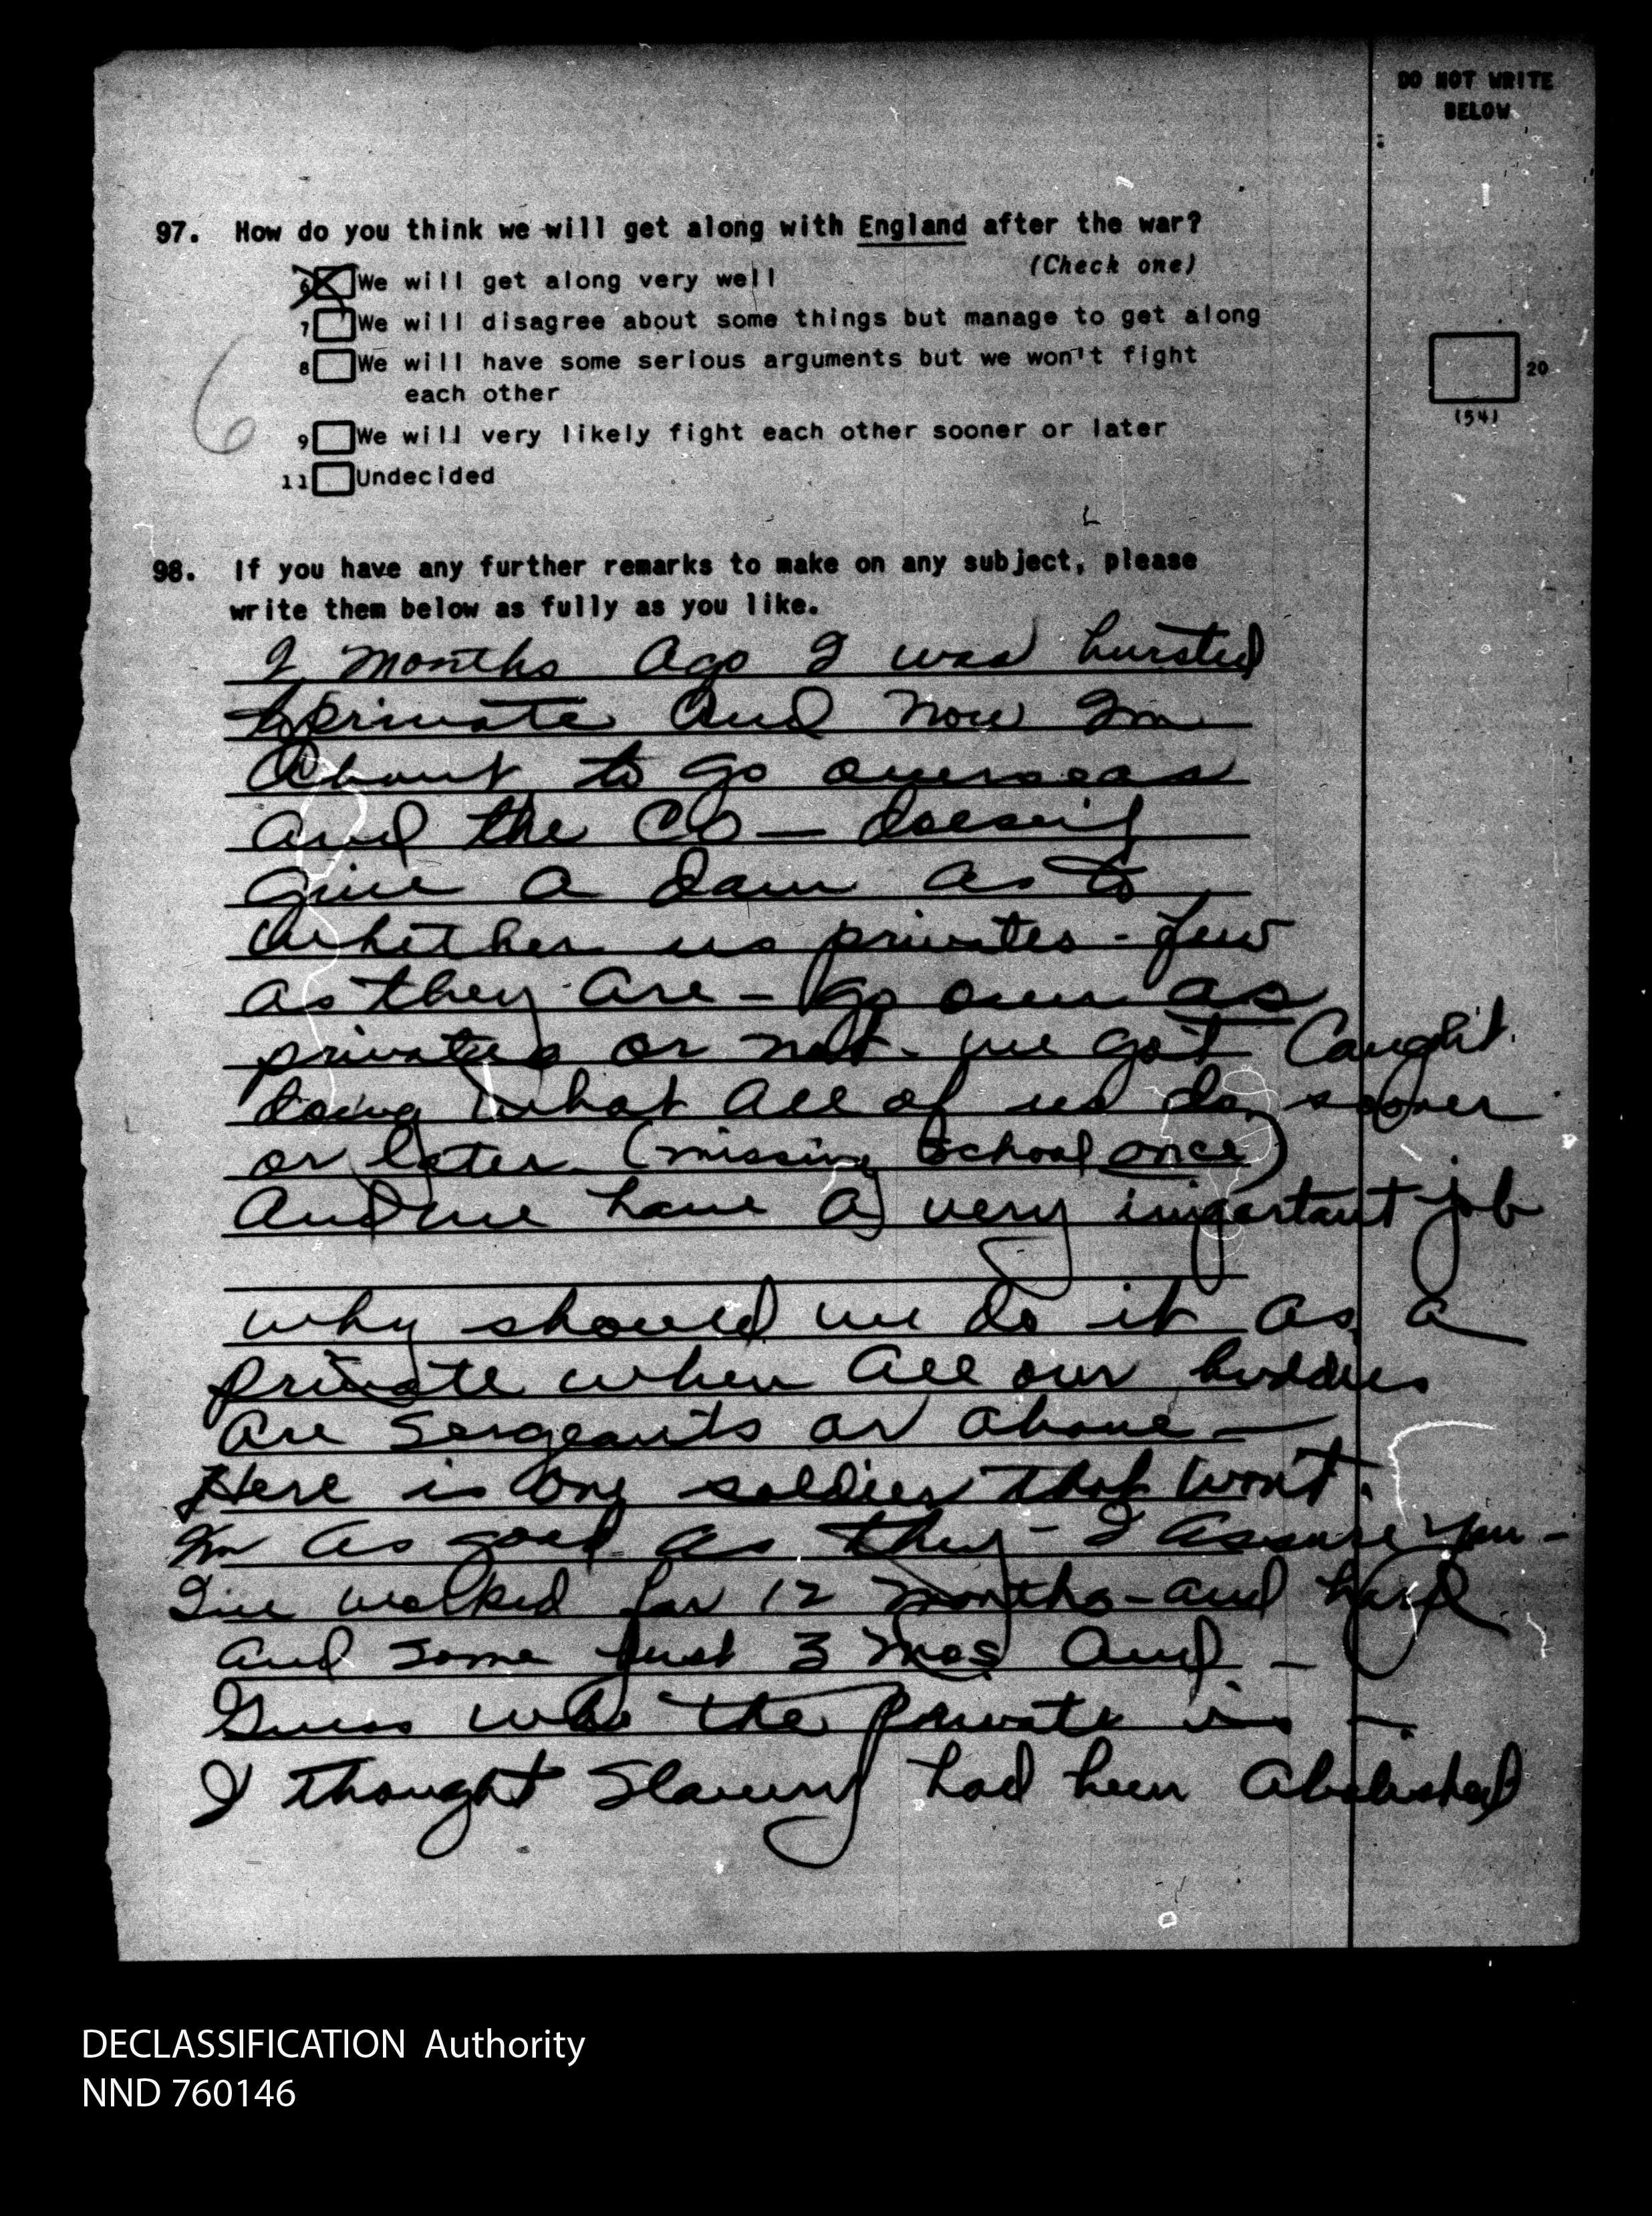 DO NOT WRITE
BELOW
97. How do you think we will get along with England after the war?
(Check one)
6 We will get along very well
7 We will disagree about some things but manage to get along
8 We will have some serious arguments but we won't fight
each other
9 We will very likely fight each other sooner or later
11 Undecided
6
20
(54)
98. If you have any further remarks to make on any subject, please
write them below as fully as you like.
months ago I was bursted
to private and now Im
about to go overseas
and the CO — doesn't
give a dam as to
whether us privates - few
as they are - go over as
privates or not - we got caught
doing what all of us do, sooner
or later (missing school once)
And we have a very important job
why should we do it as a
private when all our buddies
are sergeants or above —
Here is one soldier that wont.
Im as good as they - I assure you -
I've worked for 12 months - and hard
and some just 3 mos and -
Guess who the private is -.
I thought Slavery had been Abolished
DECLASSIFICATION Authority
NND 760146